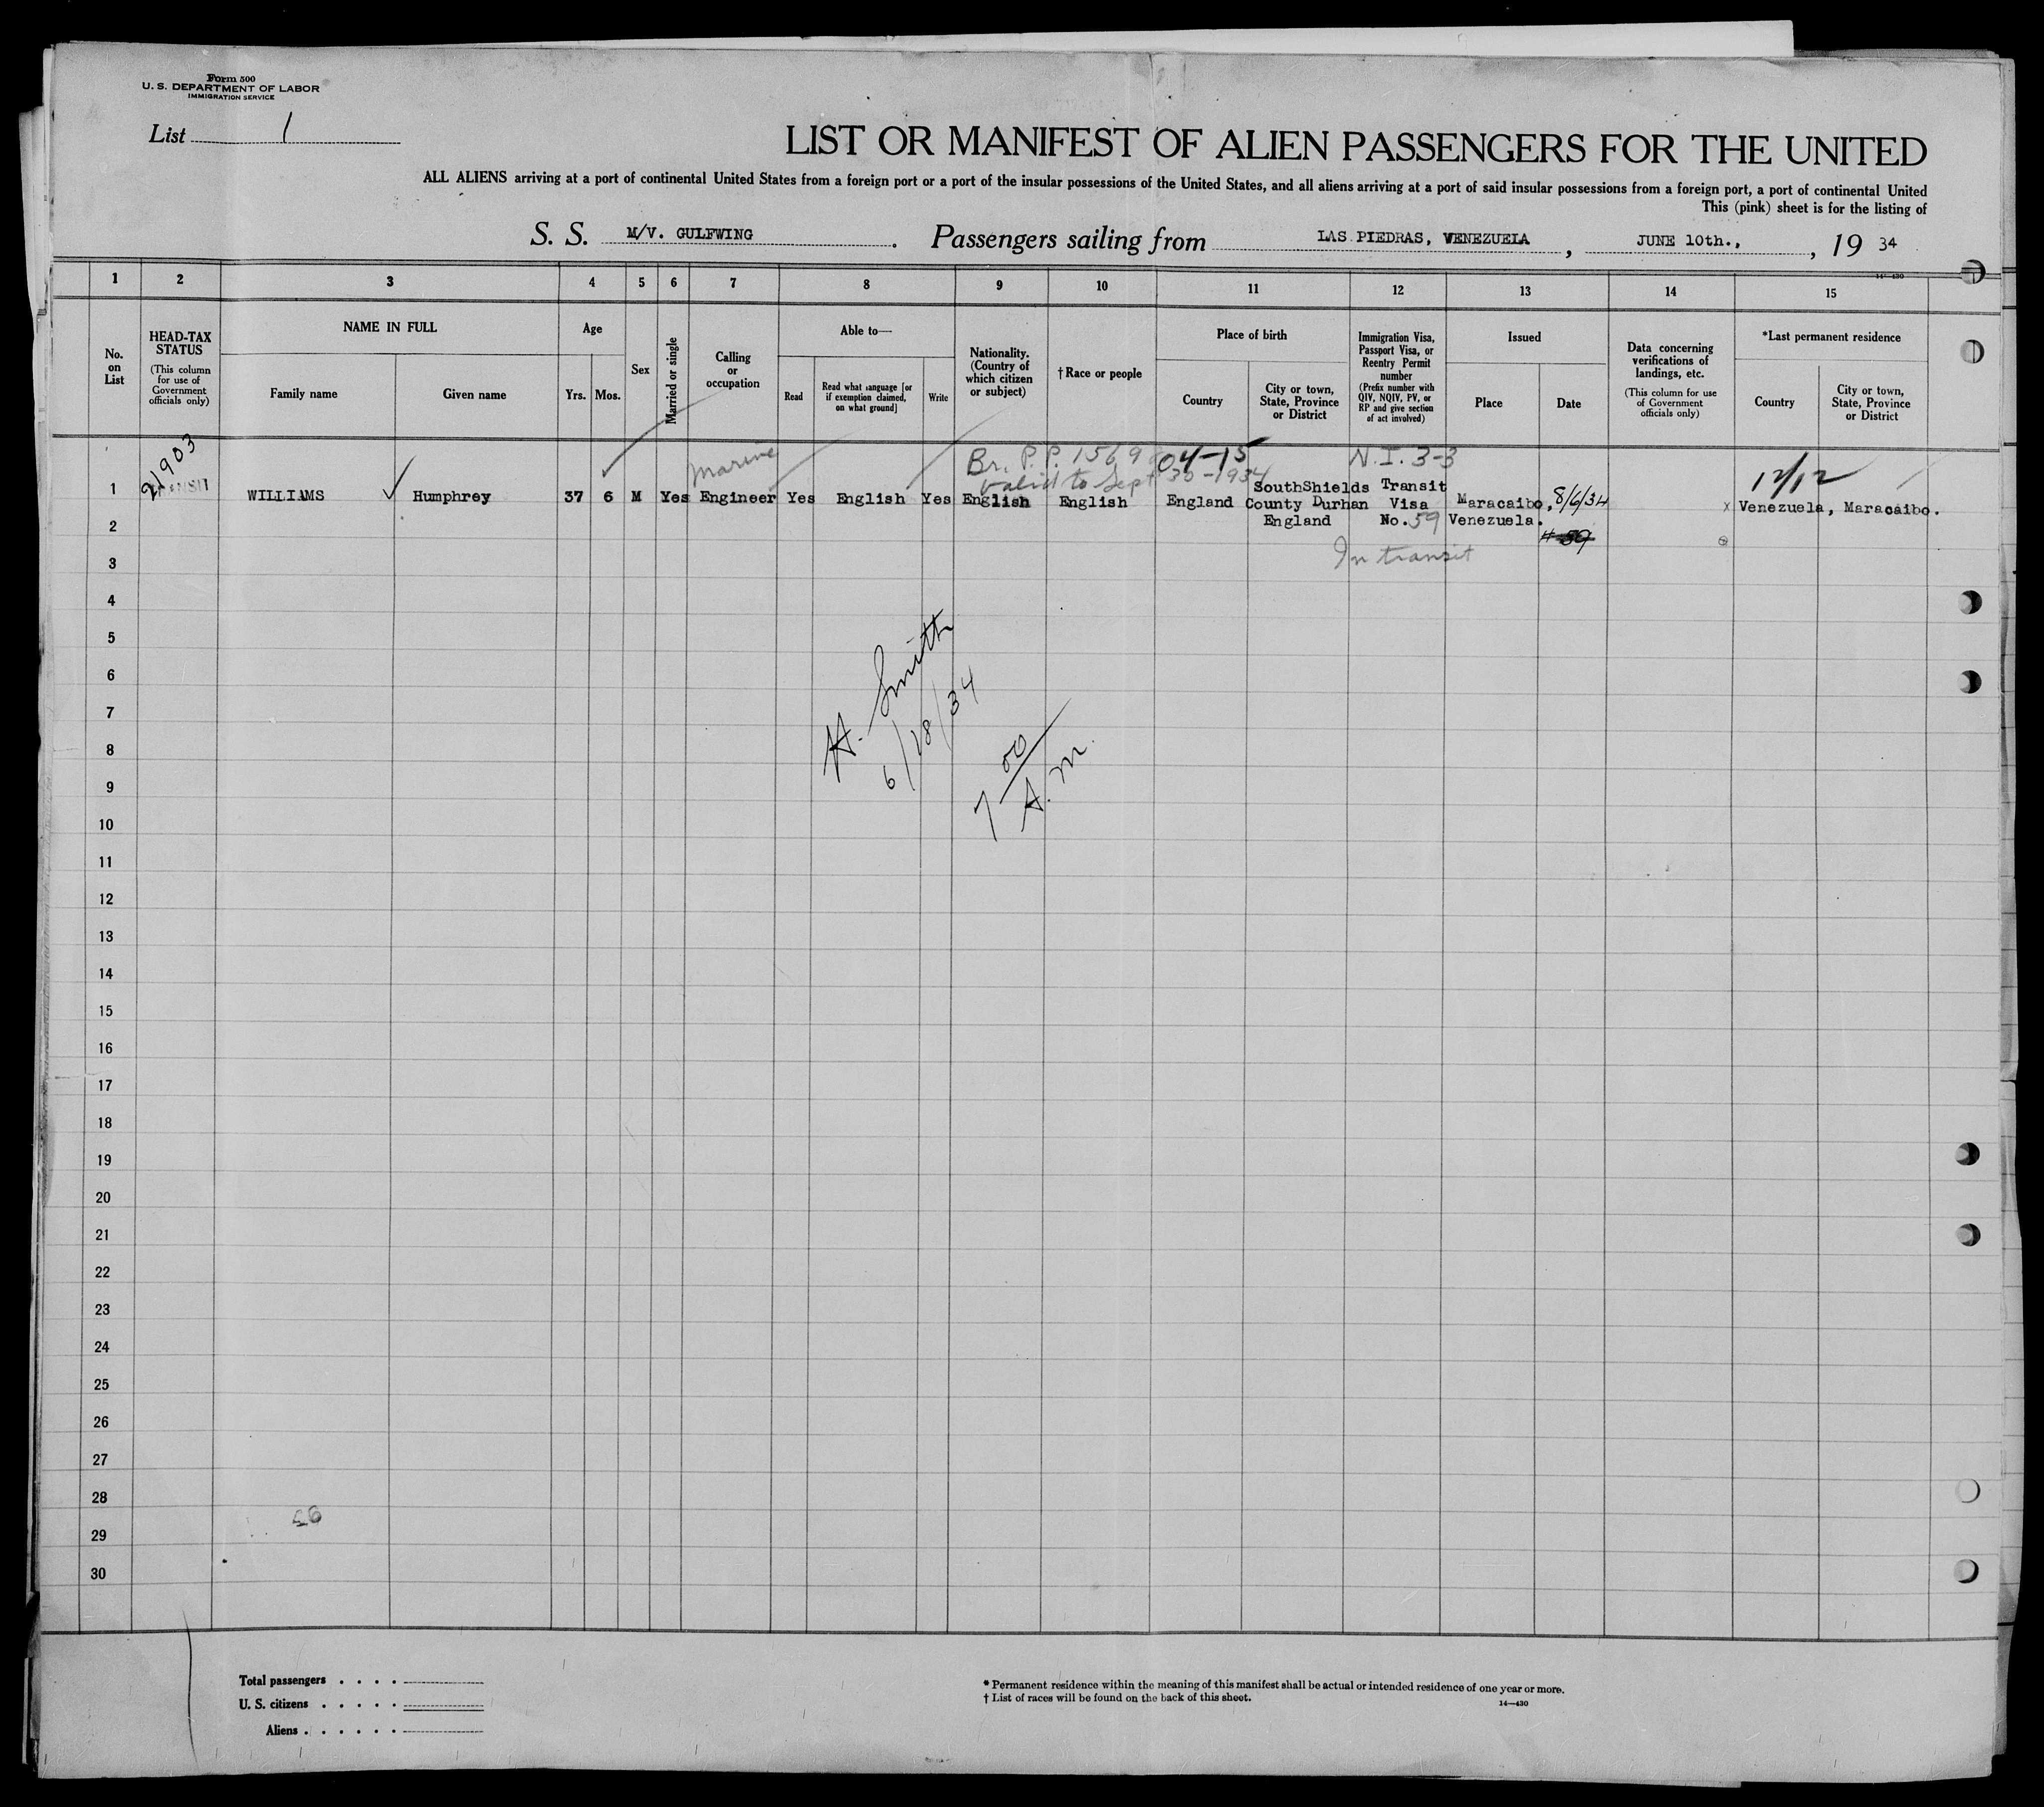 Form 500
U. S. DEPARTMENT OF LABOR
IMMIGRATION SERVICE
List 1
LIST OR MANIFEST OF ALIEN PASSENGERS FOR THE UNITED
ALL ALIENS arriving at a port of continental United States from a foreign port or a port of the insular possessions of the United States, and all aliens arriving at a port of said insular possessions from a foreign port, a port of continental United
This (pink) sheet is for the listing of
S. S. M/V. GULFWING. Passengers sailing from LAS PIEDRAS, VENEZUELA, JUNE 10th., , 19 34
14-430
1 2 3 4 5 6 7 8 9 10 11 12 13 14 15
No. on List
HEAD-TAX STATUS
(This column for use of Government officials only)
NAME IN FULL
Family name
Given name
Age
Yrs.
Mos.
Sex
Married or single
Calling or occupation
Able to—
Read
Read what language [or if exemption claimed, on what ground]
Write
Nationality. (Country of which citizen or subject)
†Race or people
Place of birth
Country
City or town, State, Province or District
Immigration Visa, Passport Visa, or Reentry Permit number
(Prefix number with QIV, NQIV, PV, or RP and give section of act involved)
Issued
Place
Date
Data concerning verifications of landings, etc.
(This column for use of Government officials only)
*Last permanent residence
Country
City or town, State, Province or District
21903
marine
Br. P. P. 1569
04-15
N. I. 3-3
12/12
Valid to Sept 30-1934
1 TRANSIT WILLIAMS Humphrey 37 6 M Yes Engineer Yes English Yes English English England SouthShields County Durhan England Transit Visa No. 59 Maracaibo, Venezuela. 8/6/34 x Venezuela, Maracaibo.
# 59
In transit
2
3
4
5
6
7
8
9
10
11
12
13
14
15
16
17
18
19
20
21
22
23
24
25
26
27
28
29
30
H. Smith
6/18/34
7 00
A. M.
Total passengers . . . .
U. S. citizens . . . . .
Aliens . . . . . .
* Permanent residence within the meaning of this manifest shall be actual or intended residence of one year or more.
† List of races will be found on the back of this sheet.
14—430